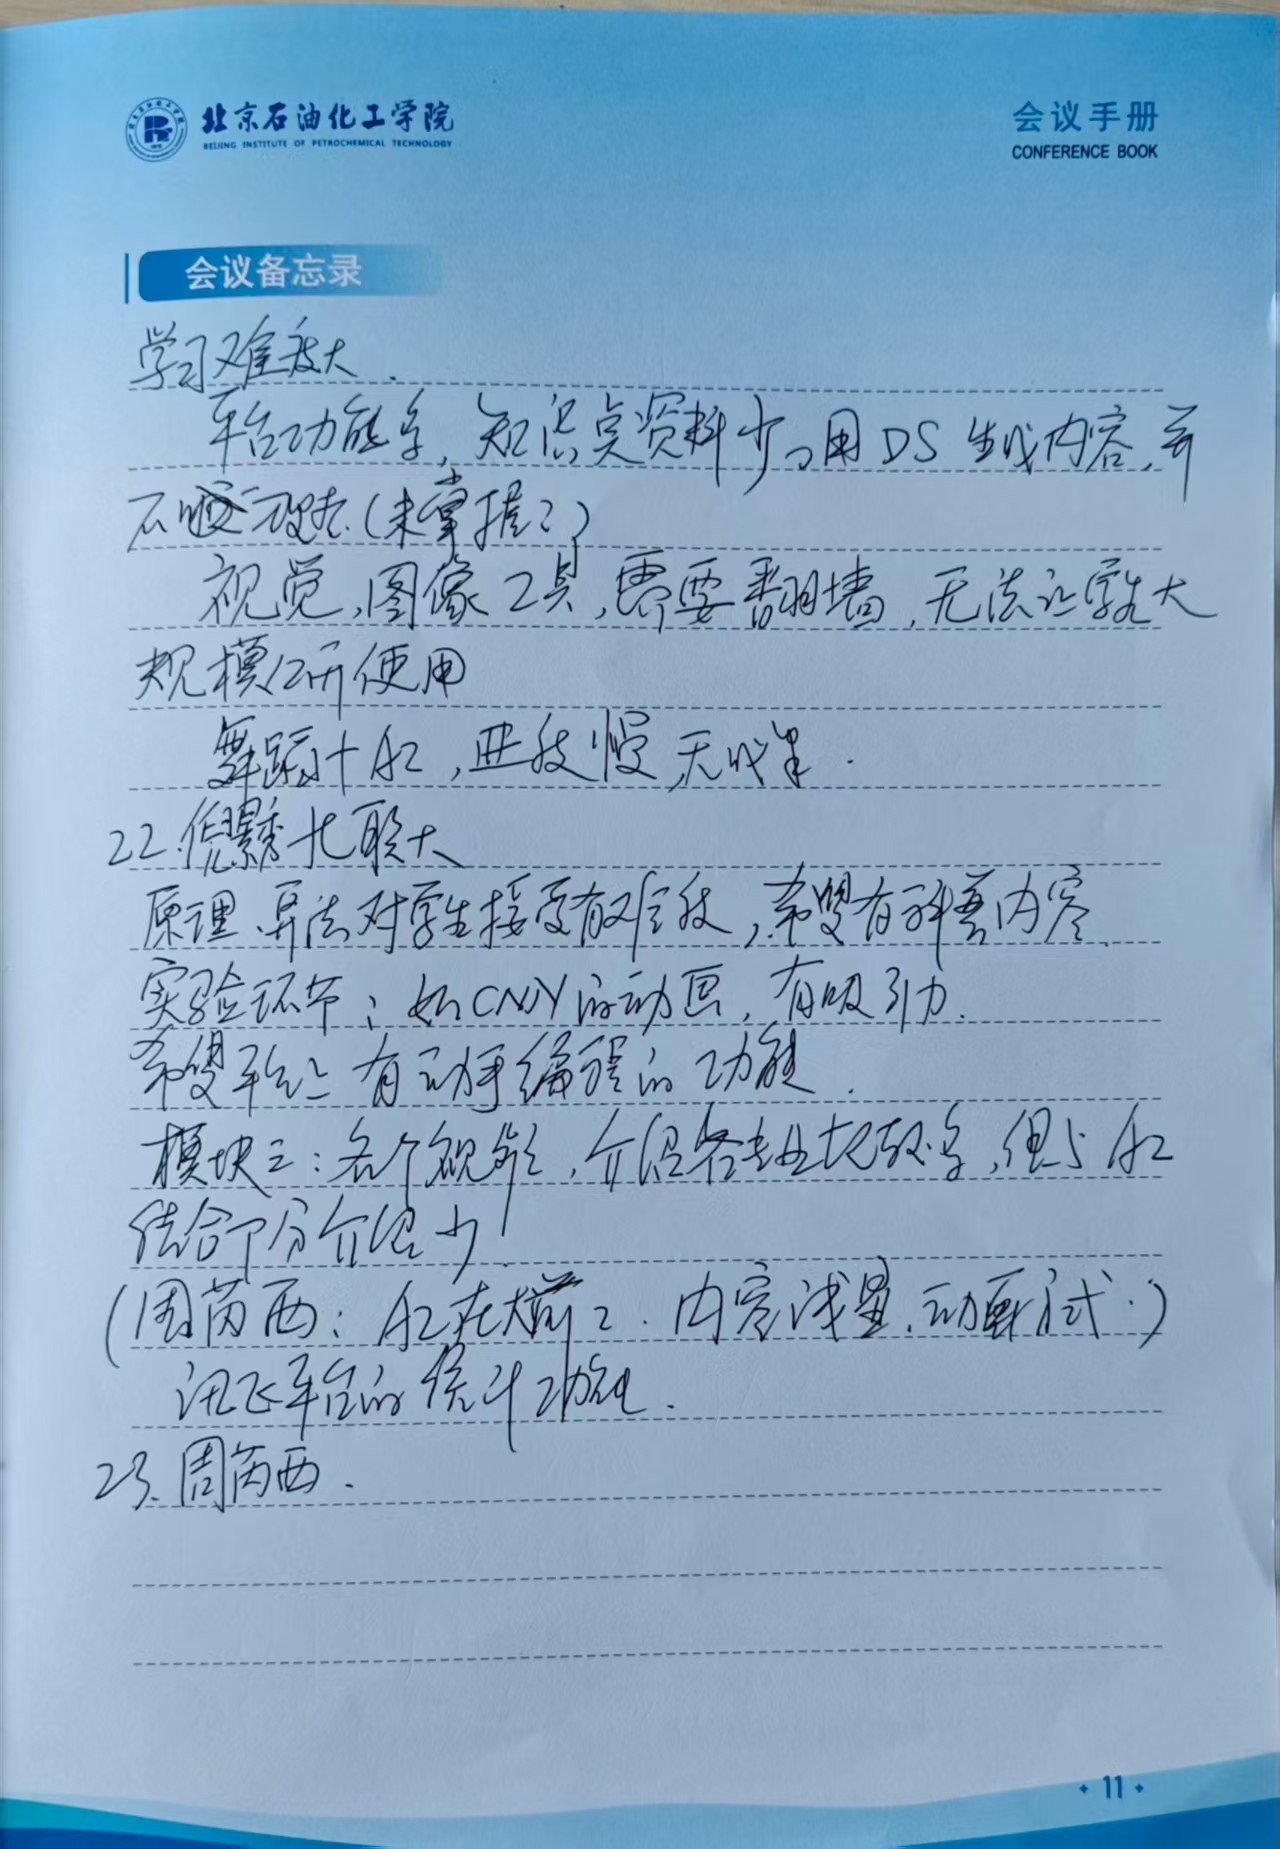 北京石油化工学院
BEIJING INSTITUTE OF PETROCHEMICAL TECHNOLOGY
会议手册
CONFERENCE BOOK
会议备忘录
学习难度大.
平台功能多,知识点资料少。用DS生成内容,并
不(未掌握?)
视觉,图像工具,需要翻墙,无法让学生大
规模使用
舞蹈+AI,进度慢,无成果.
22.倪景秀 北联大
原理、算法对学生接受有难度,希望有科普内容.
实验环节:如CNN的动画,有吸引力.
希望平台上有动手编程的功能.
模块三:各个视频,介绍各专业比较多,但与AI
结合部分介绍少.
(周芮西:AI在大前,内容浅显,动画形式.)
讯飞平台的统计功能.
23.周芮西.
11